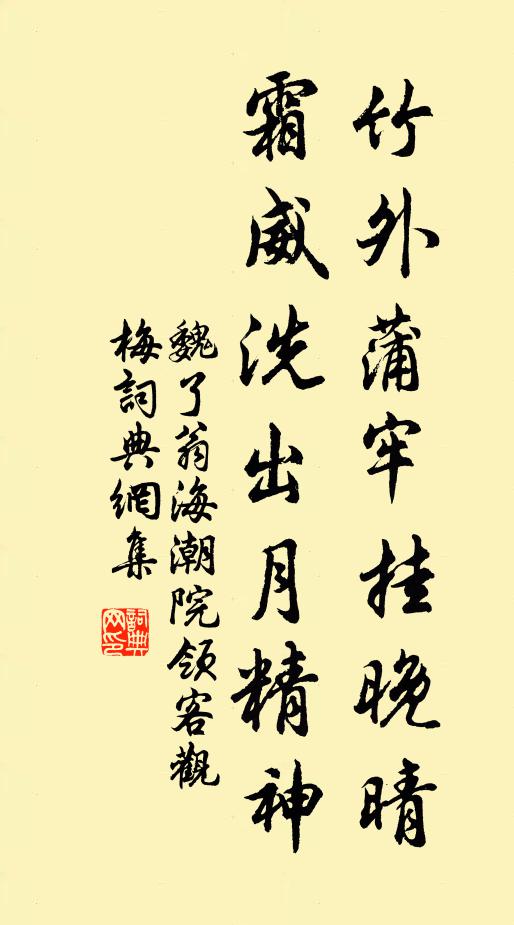 竹外蒲牢挂晚晴
霜威洗出月精神
魏了翁海潮院領客觀
梅詞典網集
詞典
网印